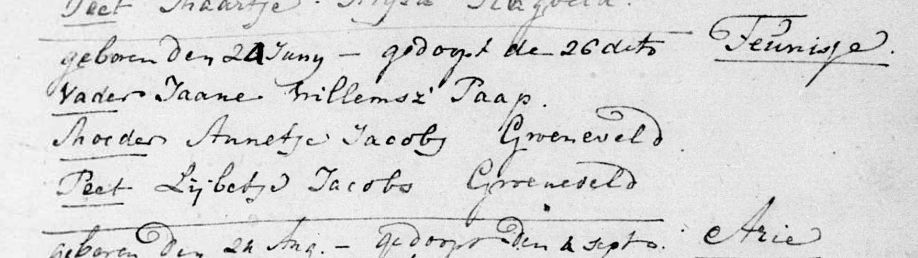 Peet Maartje
geboren den 24 Juny – gedoopt de 26 dito Teunisje.
Vader Jaane Willemsz Paap.
Moeder Annetje Jacobs Groeneveld.
Peet Lijbetje Jacobs Groeneveld
geboren den 24 Aug. – gedoopt den 4 Septo. Arie